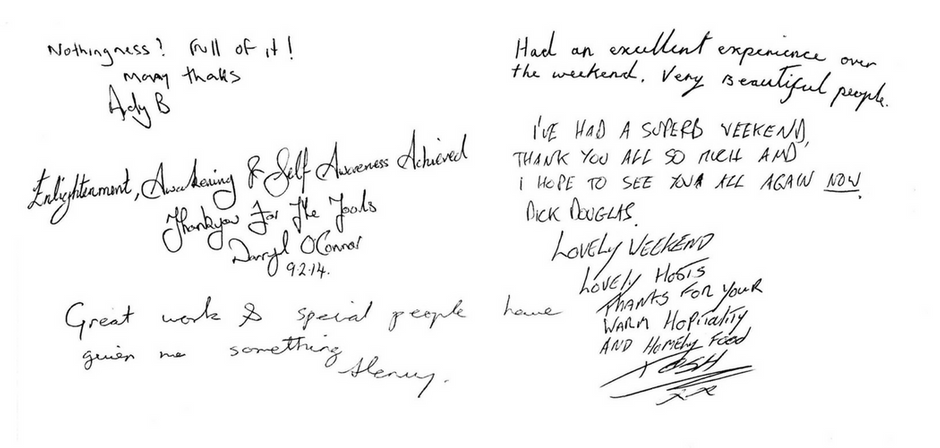 Nothingness? Full of it!
many thaks
Ady B
Enlightenment, Awakening & Self Awareness Achieved
Thankyou For The Tools
Darryl O'Connor
9.2.14.
Great work & special people have
given me something
Had an excellent experience over
the weekend. Very Beautiful people.
I'VE HAD A SUPERB WEEKEND,
THANK YOU ALL SO MUCH AND
I HOPE TO SEE ALL AGAIN NOW.
DICK DOUGLAS.
LOVELY WEEKEND
LOVELY HOSTS
THANKS FOR YOUR
WARM HOPITALITY
AND HOMELY FOOD
TOSH